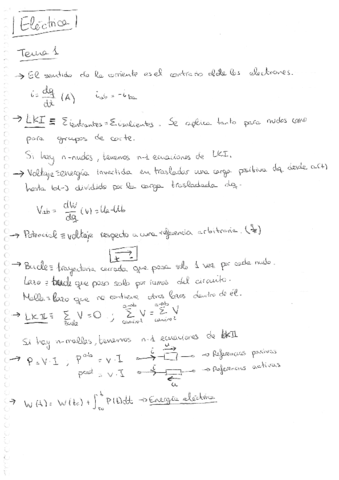 Eléctrica
Tema 1
→ El sentido de la corriente es el contrario al de los electrones.
i = dq/dt (A)   i_ab = -i_ba
→ LKI ≡ Σ entrantes = Σ salientes. Se aplica tanto para nudos como
para grupos de corte.
Si hay n-nudos, tenemos n-1 ecuaciones de LKI.
→ Voltaje ≡ energía invertida en trasladar una carga positiva dq desde a(+)
hasta b(-) dividido por la carga trasladada dq.
V_ab = dW/dq (V) = U_a - U_b
→ Potencial ≡ voltaje respecto a una referencia arbitraria.
+ -
→ Bucle ≡ trayectoria cerrada que pasa solo 1 vez por cada nudo.
Lazo ≡ bucle que pasa solo por ramas del circuito.
Malla ≡ lazo que no contiene otros lazos dentro de él.
→ LKII ≡ Σ bucle V = 0 ; Σ V = Σ V
Si hay n-mallas, tenemos ecuaciones de LKII
→ P = V·I , P abs = V·I → Referencias pasivas
P ced = V·I → Referencias activas
→ W(t) = W(t₀) + ∫ P(t)dt → Energía eléctrica